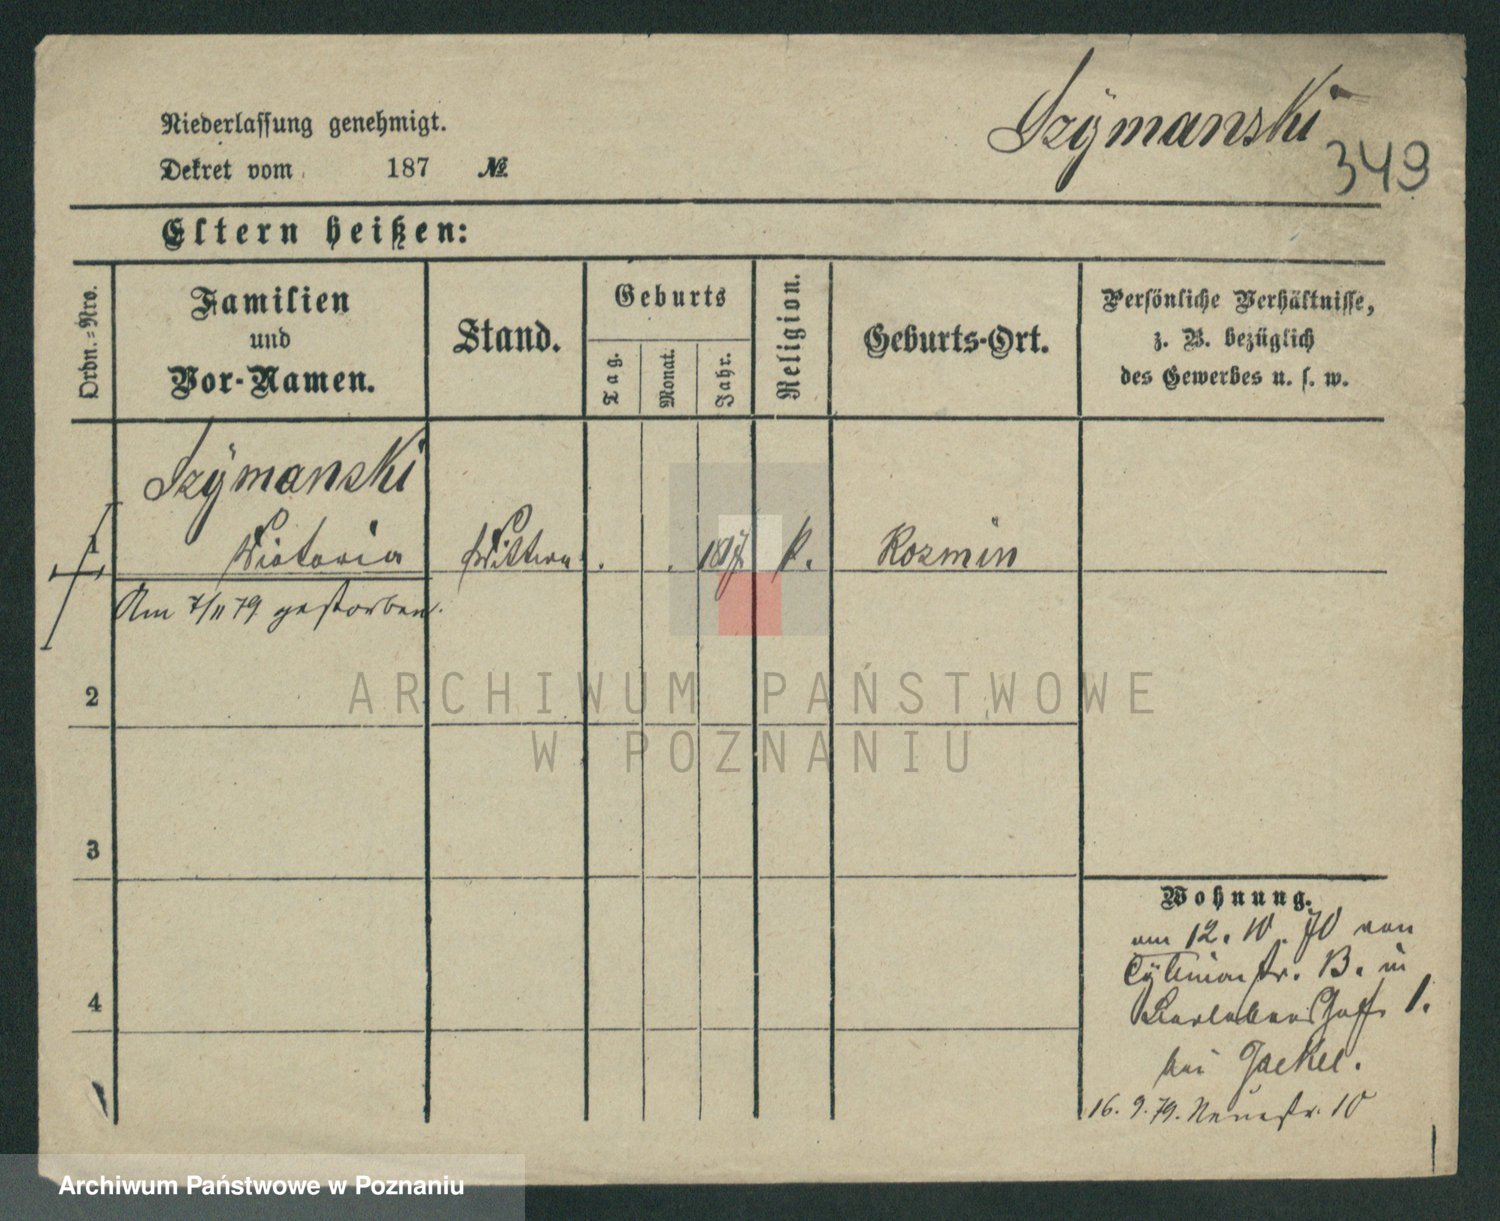 Szymanski
349
Niederlassung genehmigt.
Dekret vom 187 №
Eltern heißen:
Ordn.=Nro.
Familien
und
Vor-Namen.
Stand.
Geburts
Tag.
Monat.
Jahr.
Religion.
Geburts-Ort.
Persönliche Verhältnisse,
z. B. bezüglich
des Gewerbes u. s. w.
Szymanski
1
Victoria
k.
Kozmin
Am 7/11 79 gestorben.
2
3
4
Wohnung.
am 12. 10. 70 von
str. B. in
1.
bei Jaekel.
16. 9. 79. Neuestr. 10
ARCHIWUM PAŃSTWOWE
W POZNANIU
Archiwum Państwowe w Poznaniu